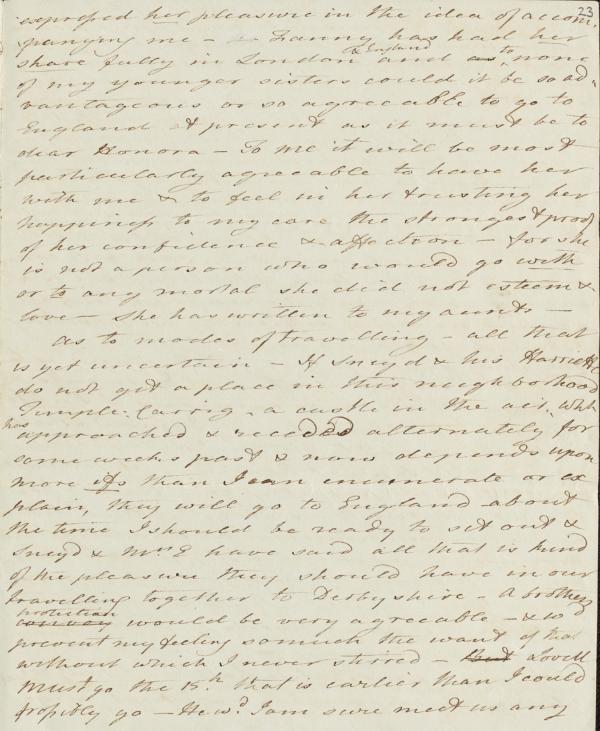 23
expressed her pleasure in the idea of accom-
panying me — Fanny has had her
& England
share fully in London and as to none
of my younger sisters could it be so ad-
vantageous or so agreeable to go to
England at present as it must be to
dear Honora — To me it will be most
particularly agreeable to have her
with me & to feel in her trusting her
happiness to my care the strongest proof
of her confidence & affection — for she
is not a person who would go with
or to any mortal she did not esteem &
love — she has written to my aunts —
as to modes of travelling — all that
is yet uncertain — If Sneyd & his Harriette
do not get a place in this neighborhood
Temple-Carrig - a castle in the air, which
has approached & receded alternately for
some weeks past & now depends upon
more ifs than I can enumerate or ex
plain, they will go to England about
the time I should be ready to set out &
Sneyd & Mrs E have said all that is kind
of the pleasure they should have in our
travelling together to Derbyshire - A brothers
protection
would be very agreeable - & wd
prevent my feeling so much the want of that
without which I never stirred - But Lovell
must go the 15th that is earlier than I could
possibly go — He wd I am sure meet us any